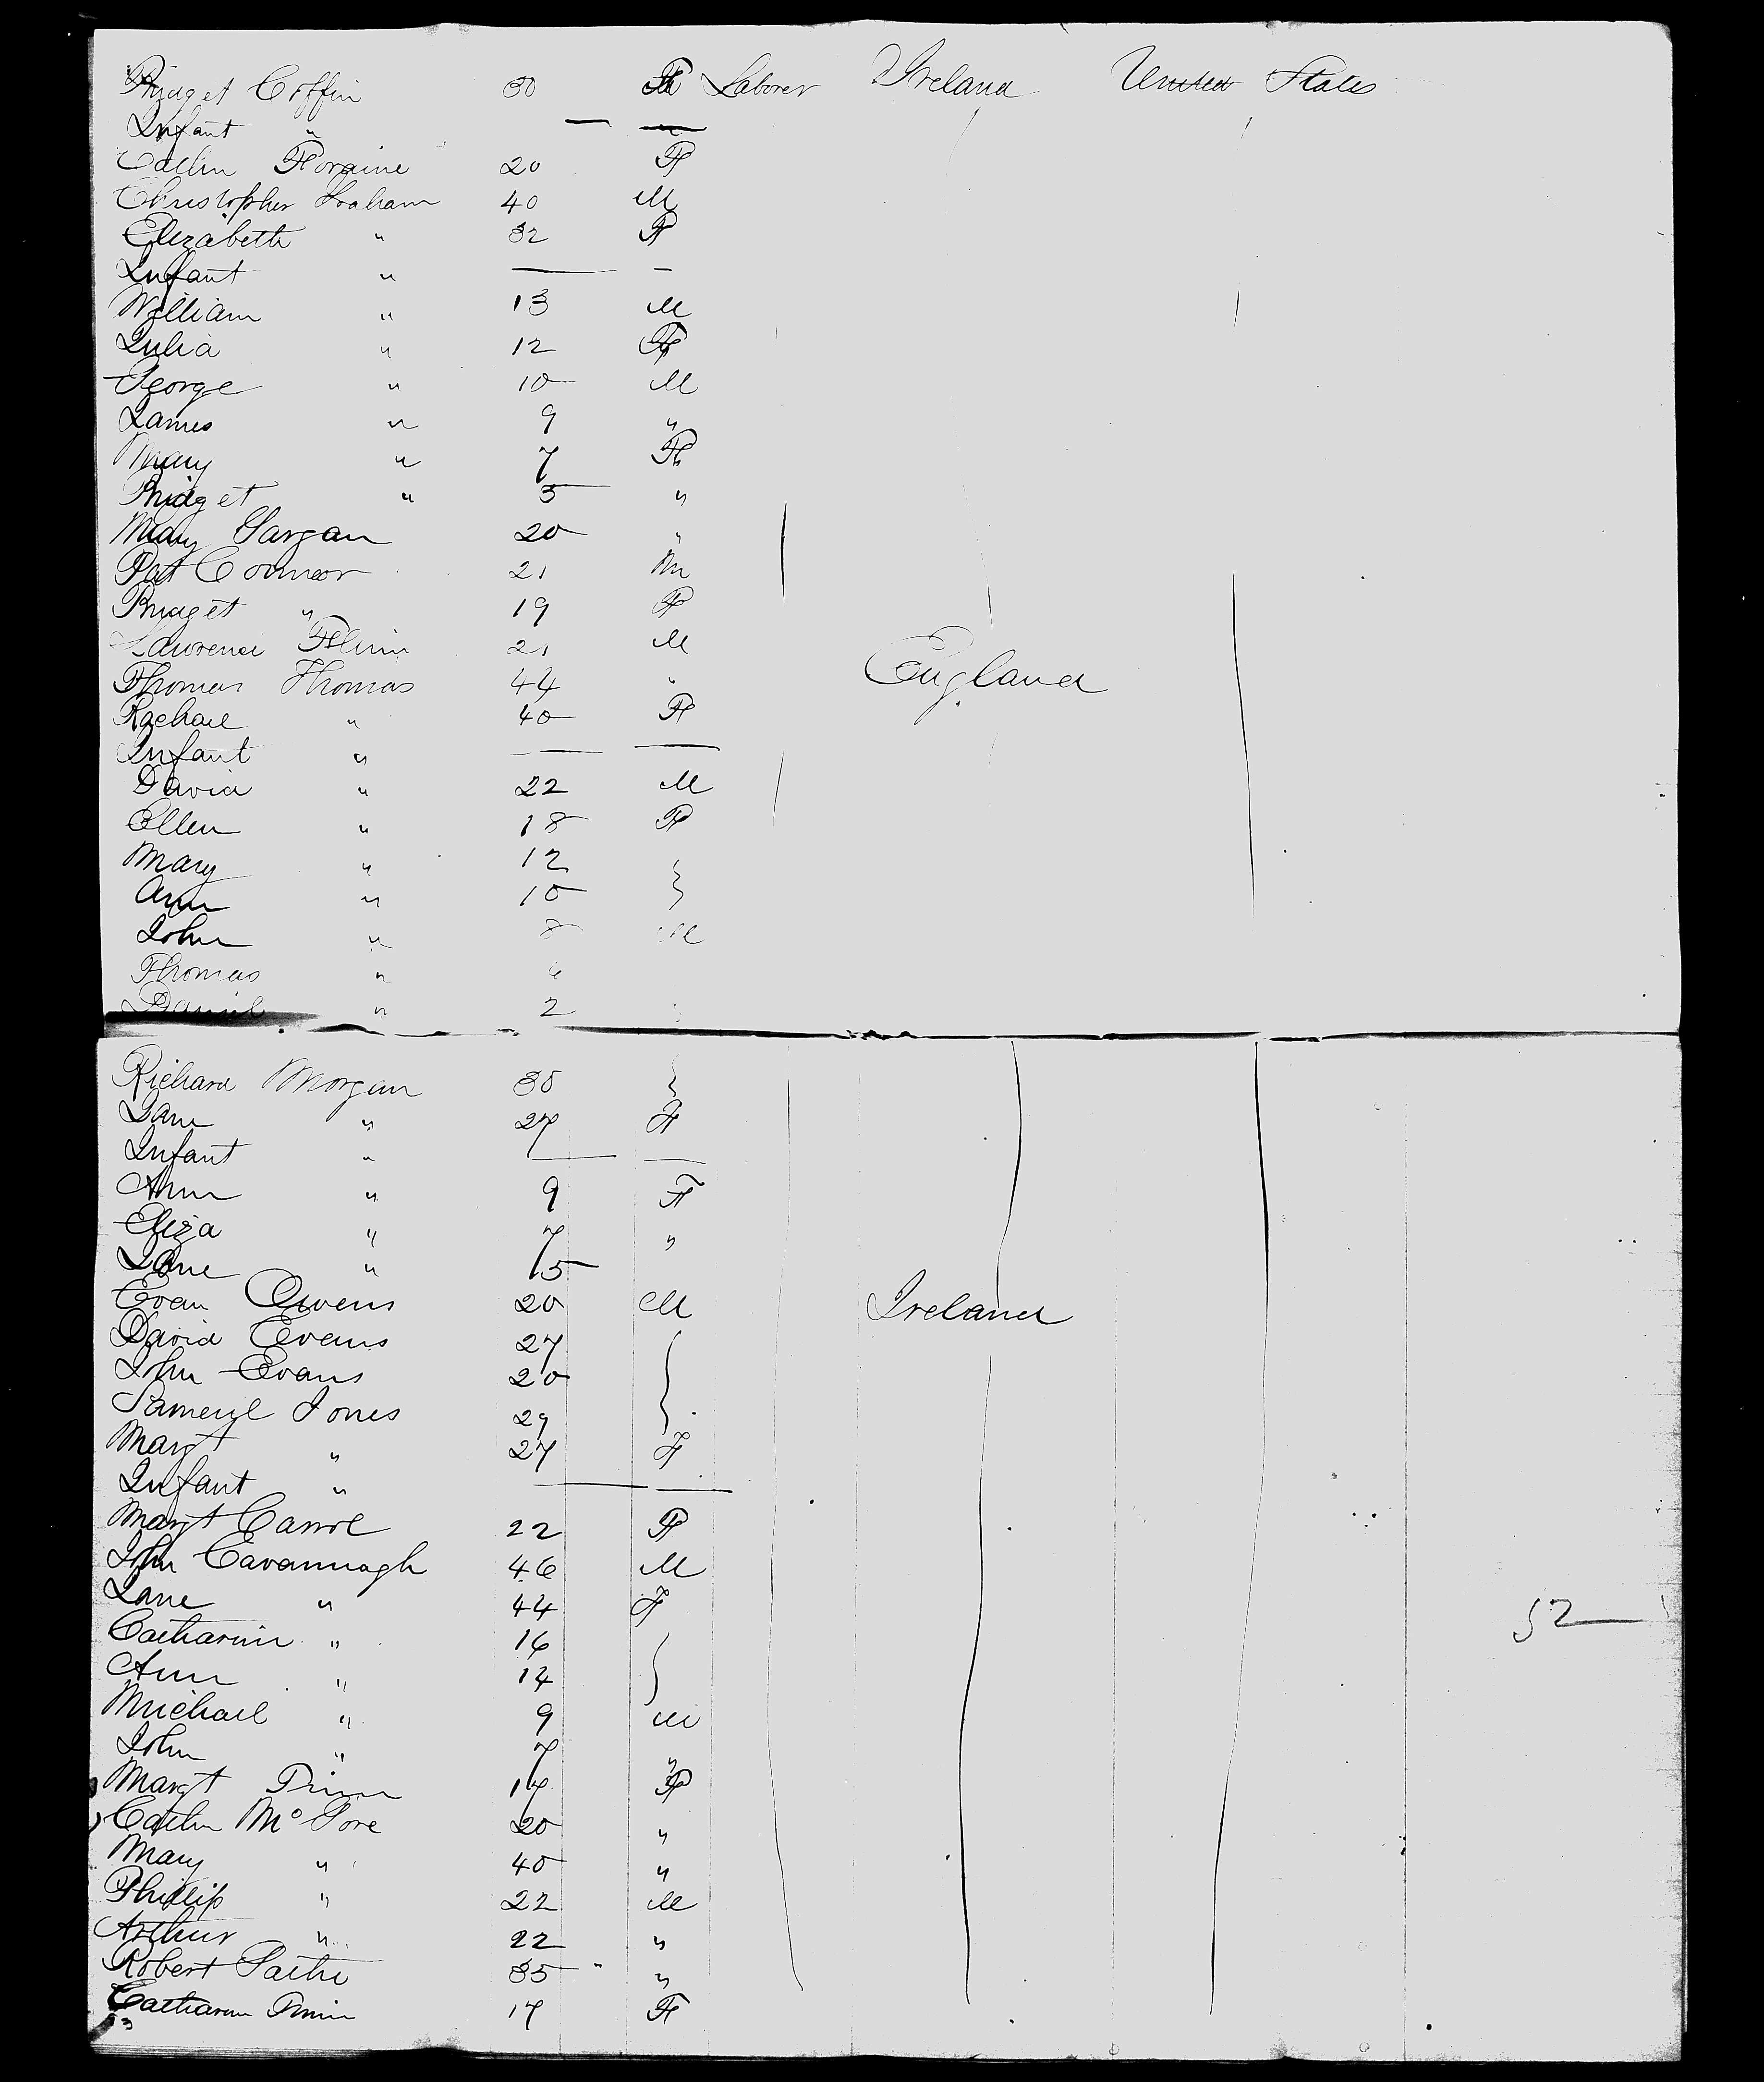 Bridget Coffin 30 F Laborer Ireland United States
Infant " — —
Cathn 20 F
Christopher Graham 40 M
Elizabeth " 32 F
Infant " — —
William " 13 M
Julia " 12 F
George " 10 M
James " 9 "
Mary " 7 F
Bridget " 5 "
Mary Gargan 20 "
Pat Connor 21 M
Bridget " 19 F
Lawrence Flinn 21 M
Thomas Thomas 44 " England
Rachael " 40 F
Infant " — —
David " 22 M
Ellen " 18 F
Mary " 12
Ann " 10
John " 8 M
Thomas " 6
Daniel " 2
Richard Morgan 30
Jane " 27 F
Infant " — —
Ann " 9 F
Eliza " 7 "
Jane " 5
Evan Owens 20 M Ireland
David Evans 27
John Evans 20
Samuel Jones 29
Margt " 27 F
Infant " — —
Margt Carrol 22 F
John Cavannagh 46 M
Jane " 44 F 52
Catharine " 16
Ann " 12
Michael " 9 M
John " 7 "
Margt 17 F
Cathn Mc 20 "
Mary " 40 "
Phillip " 22 M
Arthur " 22 "
Robert 35 "
Catharine 17 F